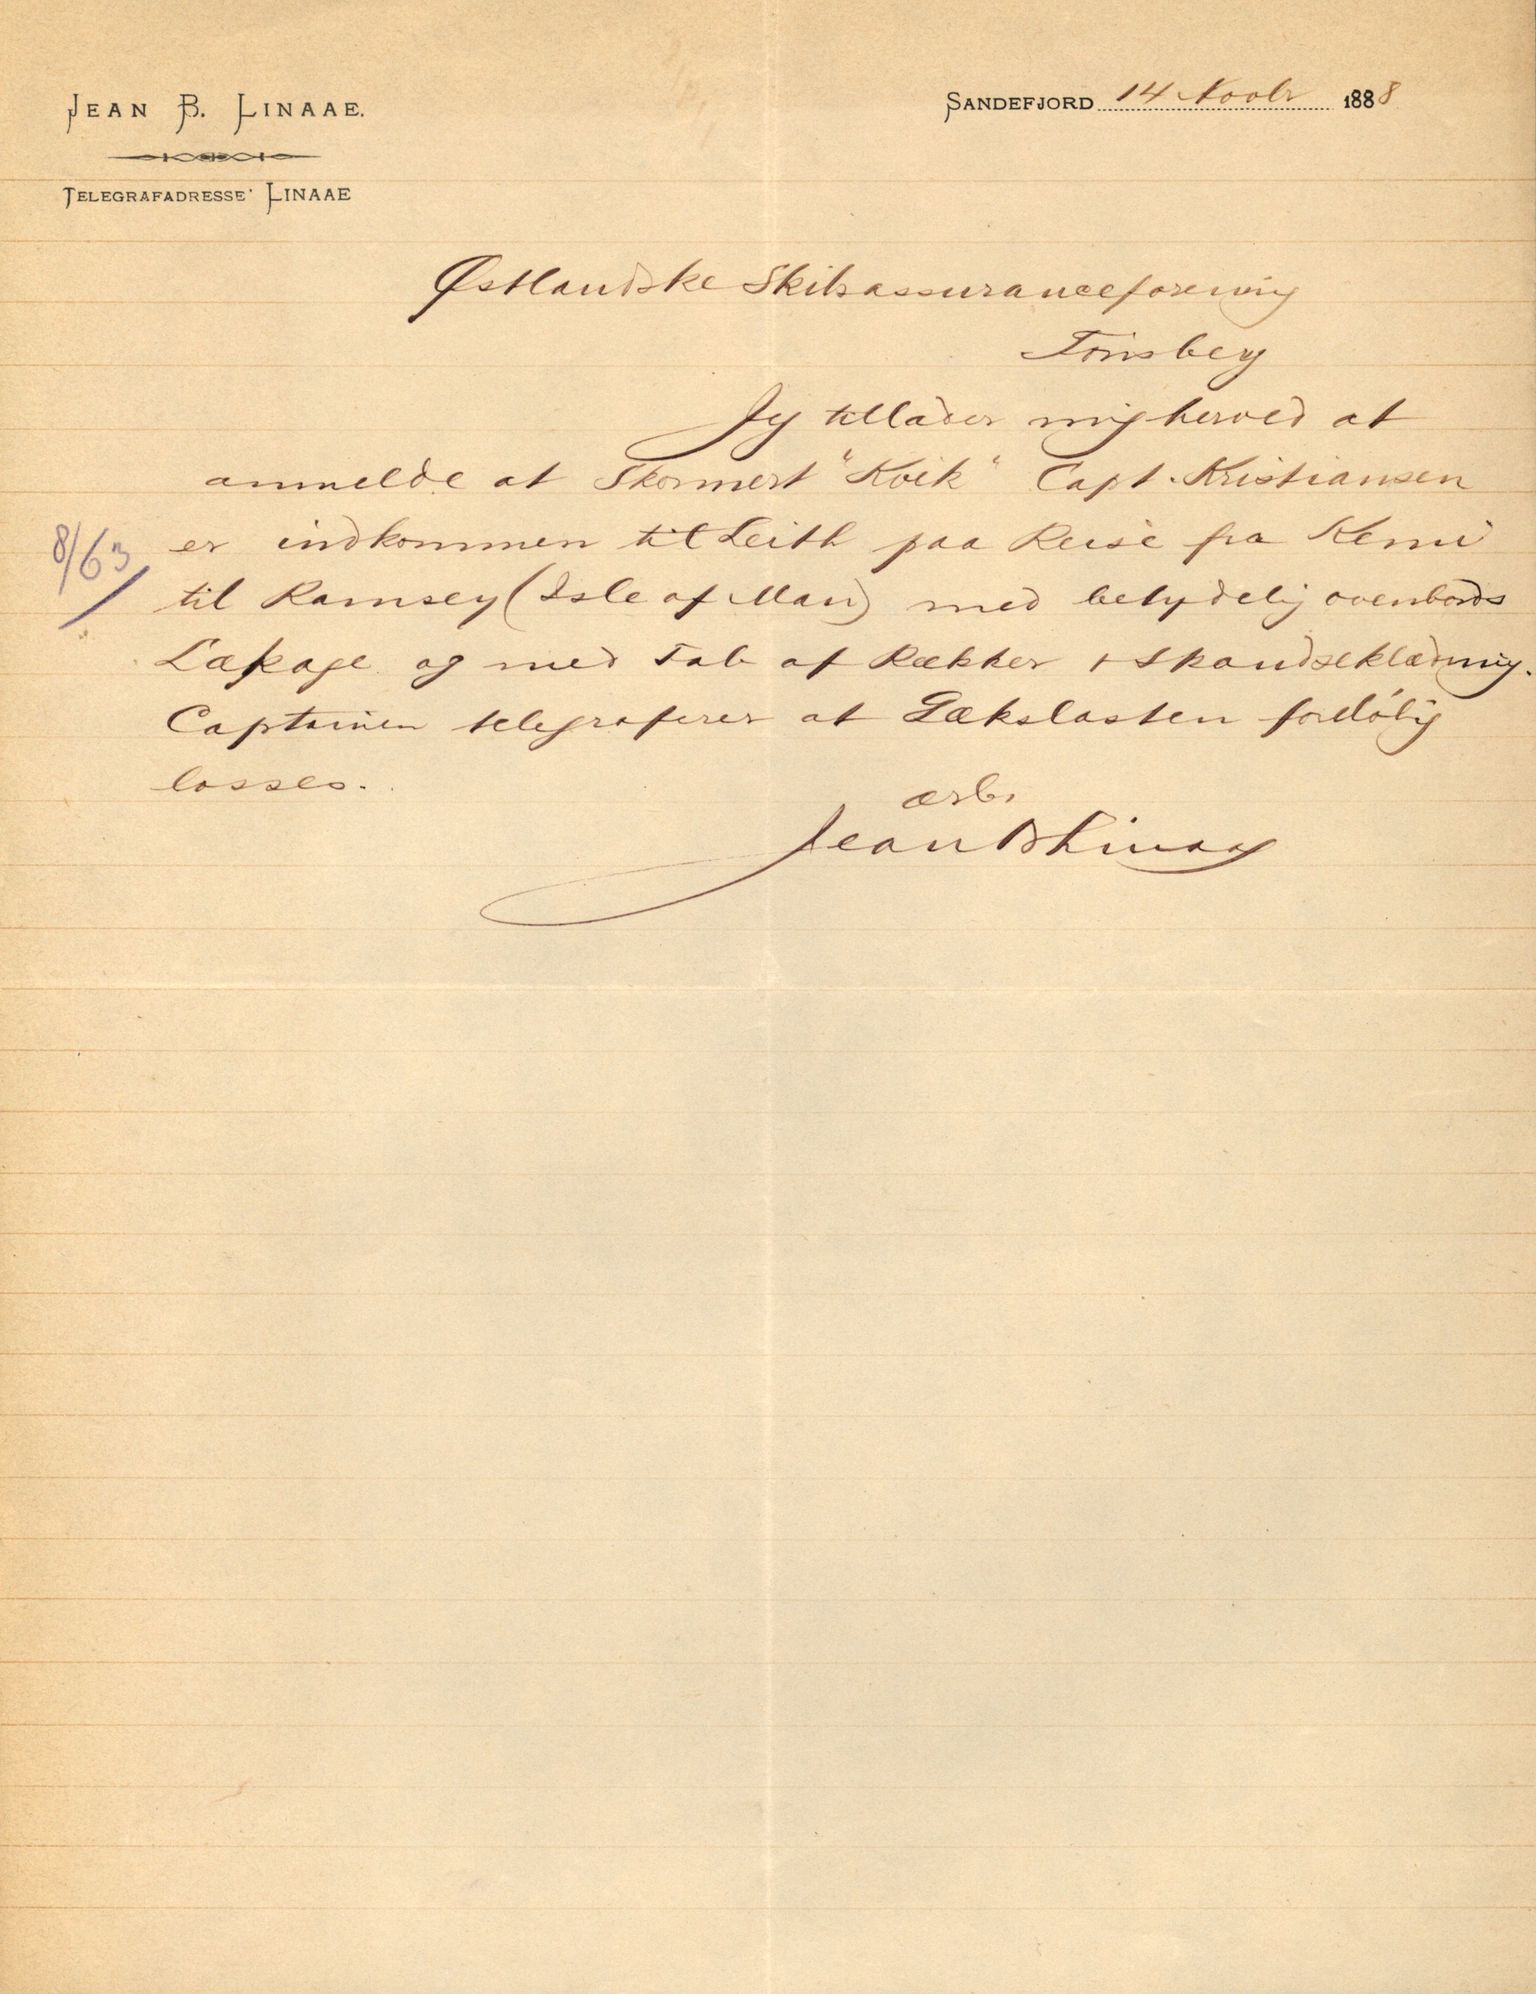 JEAN B. LINAAE.
TELEGRAFADRESSE' LINAAE
SANDEFJORD 14 Novbr 1888
Østlandske Skibsassuranceforening
Tönsberg
Jeg tillader mig herved at
anmelde at Skonnert "Kvik" Capt. Kristiansen
8/63
er indkommen til Leith paa Reise fra Kemi
til Ramsey (Isle of Man) med betydelig ovenbords
Lækage og med Tab af Rækker & Skandseklædning.
Captainen telegraferer at Dækslasten foreløbig
losses.
ærb.
Jean B Linaae